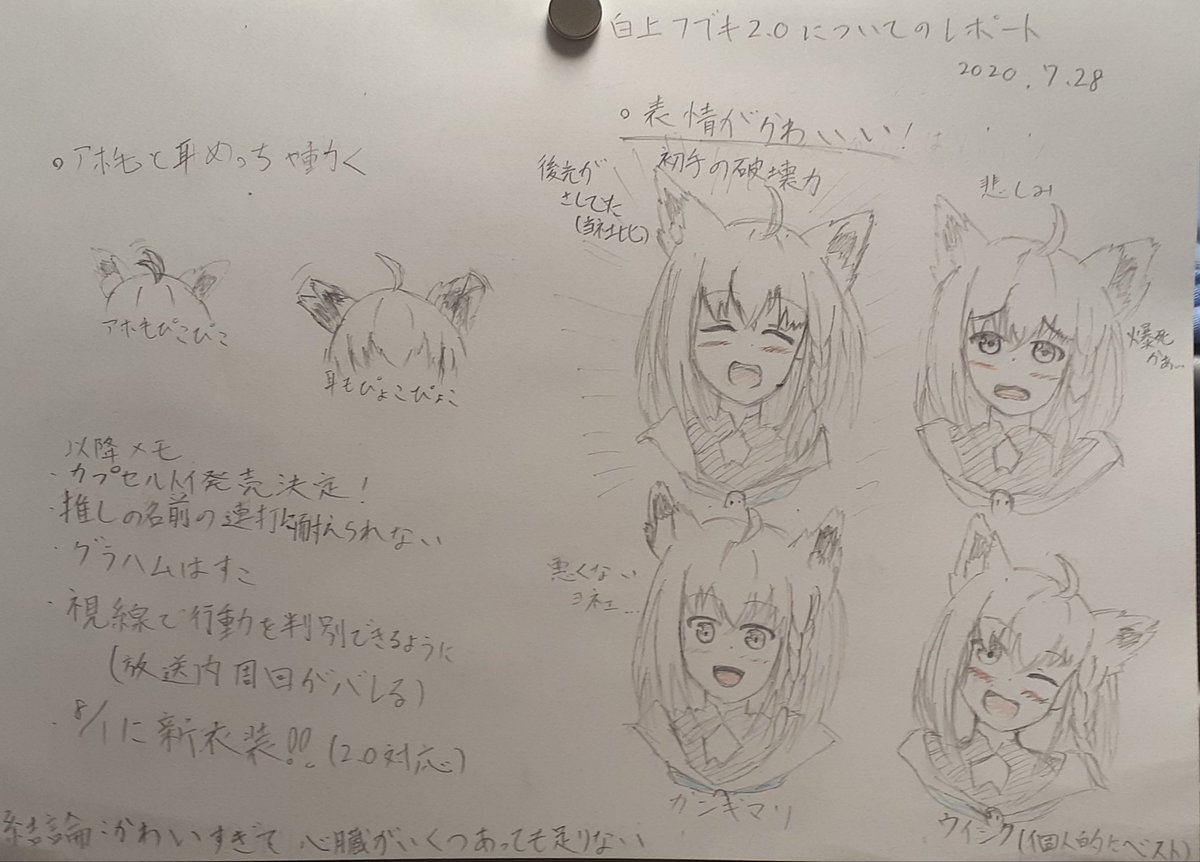 白上フブキ2.0についてのレポート
2020.7.28
。アホ毛と耳めっちゃ動く
アホ毛ぴこぴこ
耳もぴょこぴょこ
。表情がかわいい!
初手の破壊力
後光が
さしてた
(当社比)
悲しみ
爆死
かぁ…
悪くない
ヨネェ…
ガンギマリ
ウインク(個人的とベスト)
以降メモ
・カプセルトイ発売決定!
・推しの名前の連打に耐えられない
・グラハムはすこ
・視線で行動を判別できるように
(放送内周回がバレる)
・8/1に新衣装!!(2.0対応)
結論:かわいすぎて 心臓がいくつあっても足りない